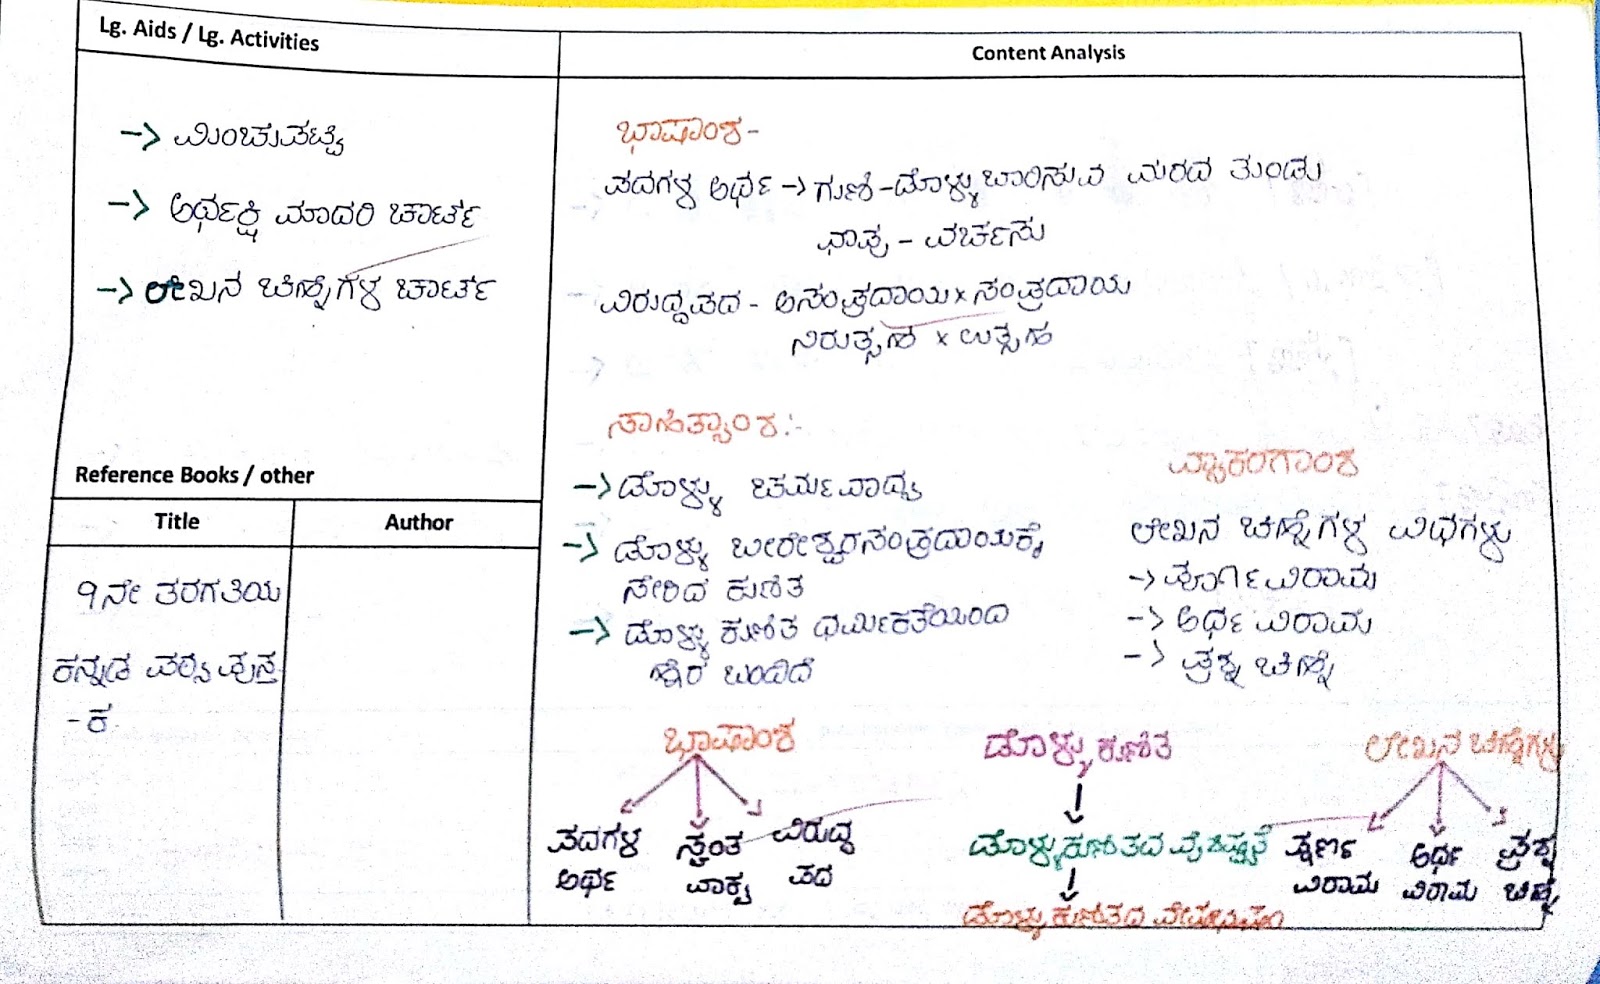 Lg. Aids / Lg. Activities
→ ಮಿಂಚುಪಟ್ಟಿ
→ ಅರ್ಥಕ್ಷಿ ಮಾದರಿ ಚಾರ್ಟ್
→ ಲೇಖನ ಚಿಹ್ನೆಗಳ ಚಾರ್ಟ್
Reference Books / other
Title
Author
9ನೇ ತರಗತಿಯ
ಕನ್ನಡ ಪಠ್ಯ ಪುಸ್ತ
- ಕ
Content Analysis
ಭಾಷಾಂಶ -
ಪದಗಳ ಅರ್ಥ → ಗುಣಿ - ಡೊಳ್ಳು ಬಾರಿಸುವ ಮರದ ತುಂಡು
ಛಾಪು - ವರ್ಚಸು
ವಿರುದ್ಧಪದ - ಅಸಂಪ್ರದಾಯ × ಸಂಪ್ರದಾಯ
ನಿರುತ್ಸಹ × ಉತ್ಸಹ
ಸಾಹಿತ್ಯಾಂಶ :-
→ ಡೊಳ್ಳು ಚರ್ಮವಾದ್ಯ
→ ಡೊಳ್ಳು ಬೀರೇಶ್ವರ ಸಂಪ್ರದಾಯಕ್ಕೆ
ಸೇರಿದ ಕುಣಿತ
→ ಡೊಳ್ಳು ಕುಣಿತ ಧರ್ಮಿಕತೆಯಿಂದ
ಬಂದಿದೆ
ವ್ಯಾಕರಣಾಂಶ
ಲೇಖನ ಚಿಹ್ನೆಗಳ ವಿಧಗಳು
→ ಪೂರ್ಣವಿರಾಮ
→ ಅರ್ಧವಿರಾಮ
→ ಪ್ರಶ್ನ ಚಿಹ್ನೆ
ಭಾಷಾಂಶ
ಪದಗಳ ಅರ್ಥ
ಸ್ವಂತ ವಾಕ್ಯ
ವಿರುದ್ಧ ಪದ
ಡೊಳ್ಳು ಕುಣಿತ
ಡೊಳ್ಳುಕುಣಿತದ ವೈಶಿಷ್ಟ್ಯತೆ
ಡೊಳ್ಳು ಕುಣಿತದ ವೇಷಭೂಷಣ
ಲೇಖನ ಚಿಹ್ನೆಗಳು
ಪೂರ್ಣ ವಿರಾಮ
ಅರ್ಧ ವಿರಾಮ
ಪ್ರಶ್ನ ಚಿಹ್ನೆ